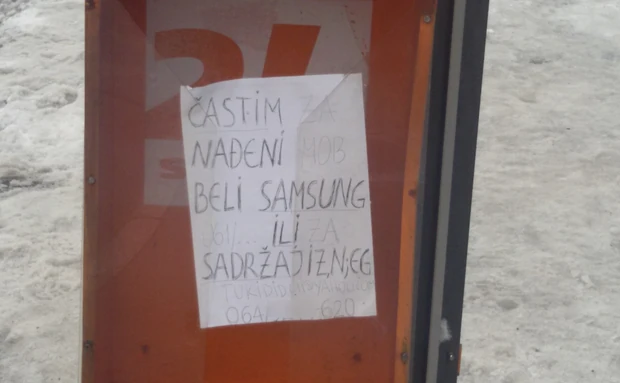 24
ČASTIM ZA
NAĐENI MOB
BELI SAMSUNG
061/... ILI ZA
SADRŽAJ IZ,N;EG
064/ 620